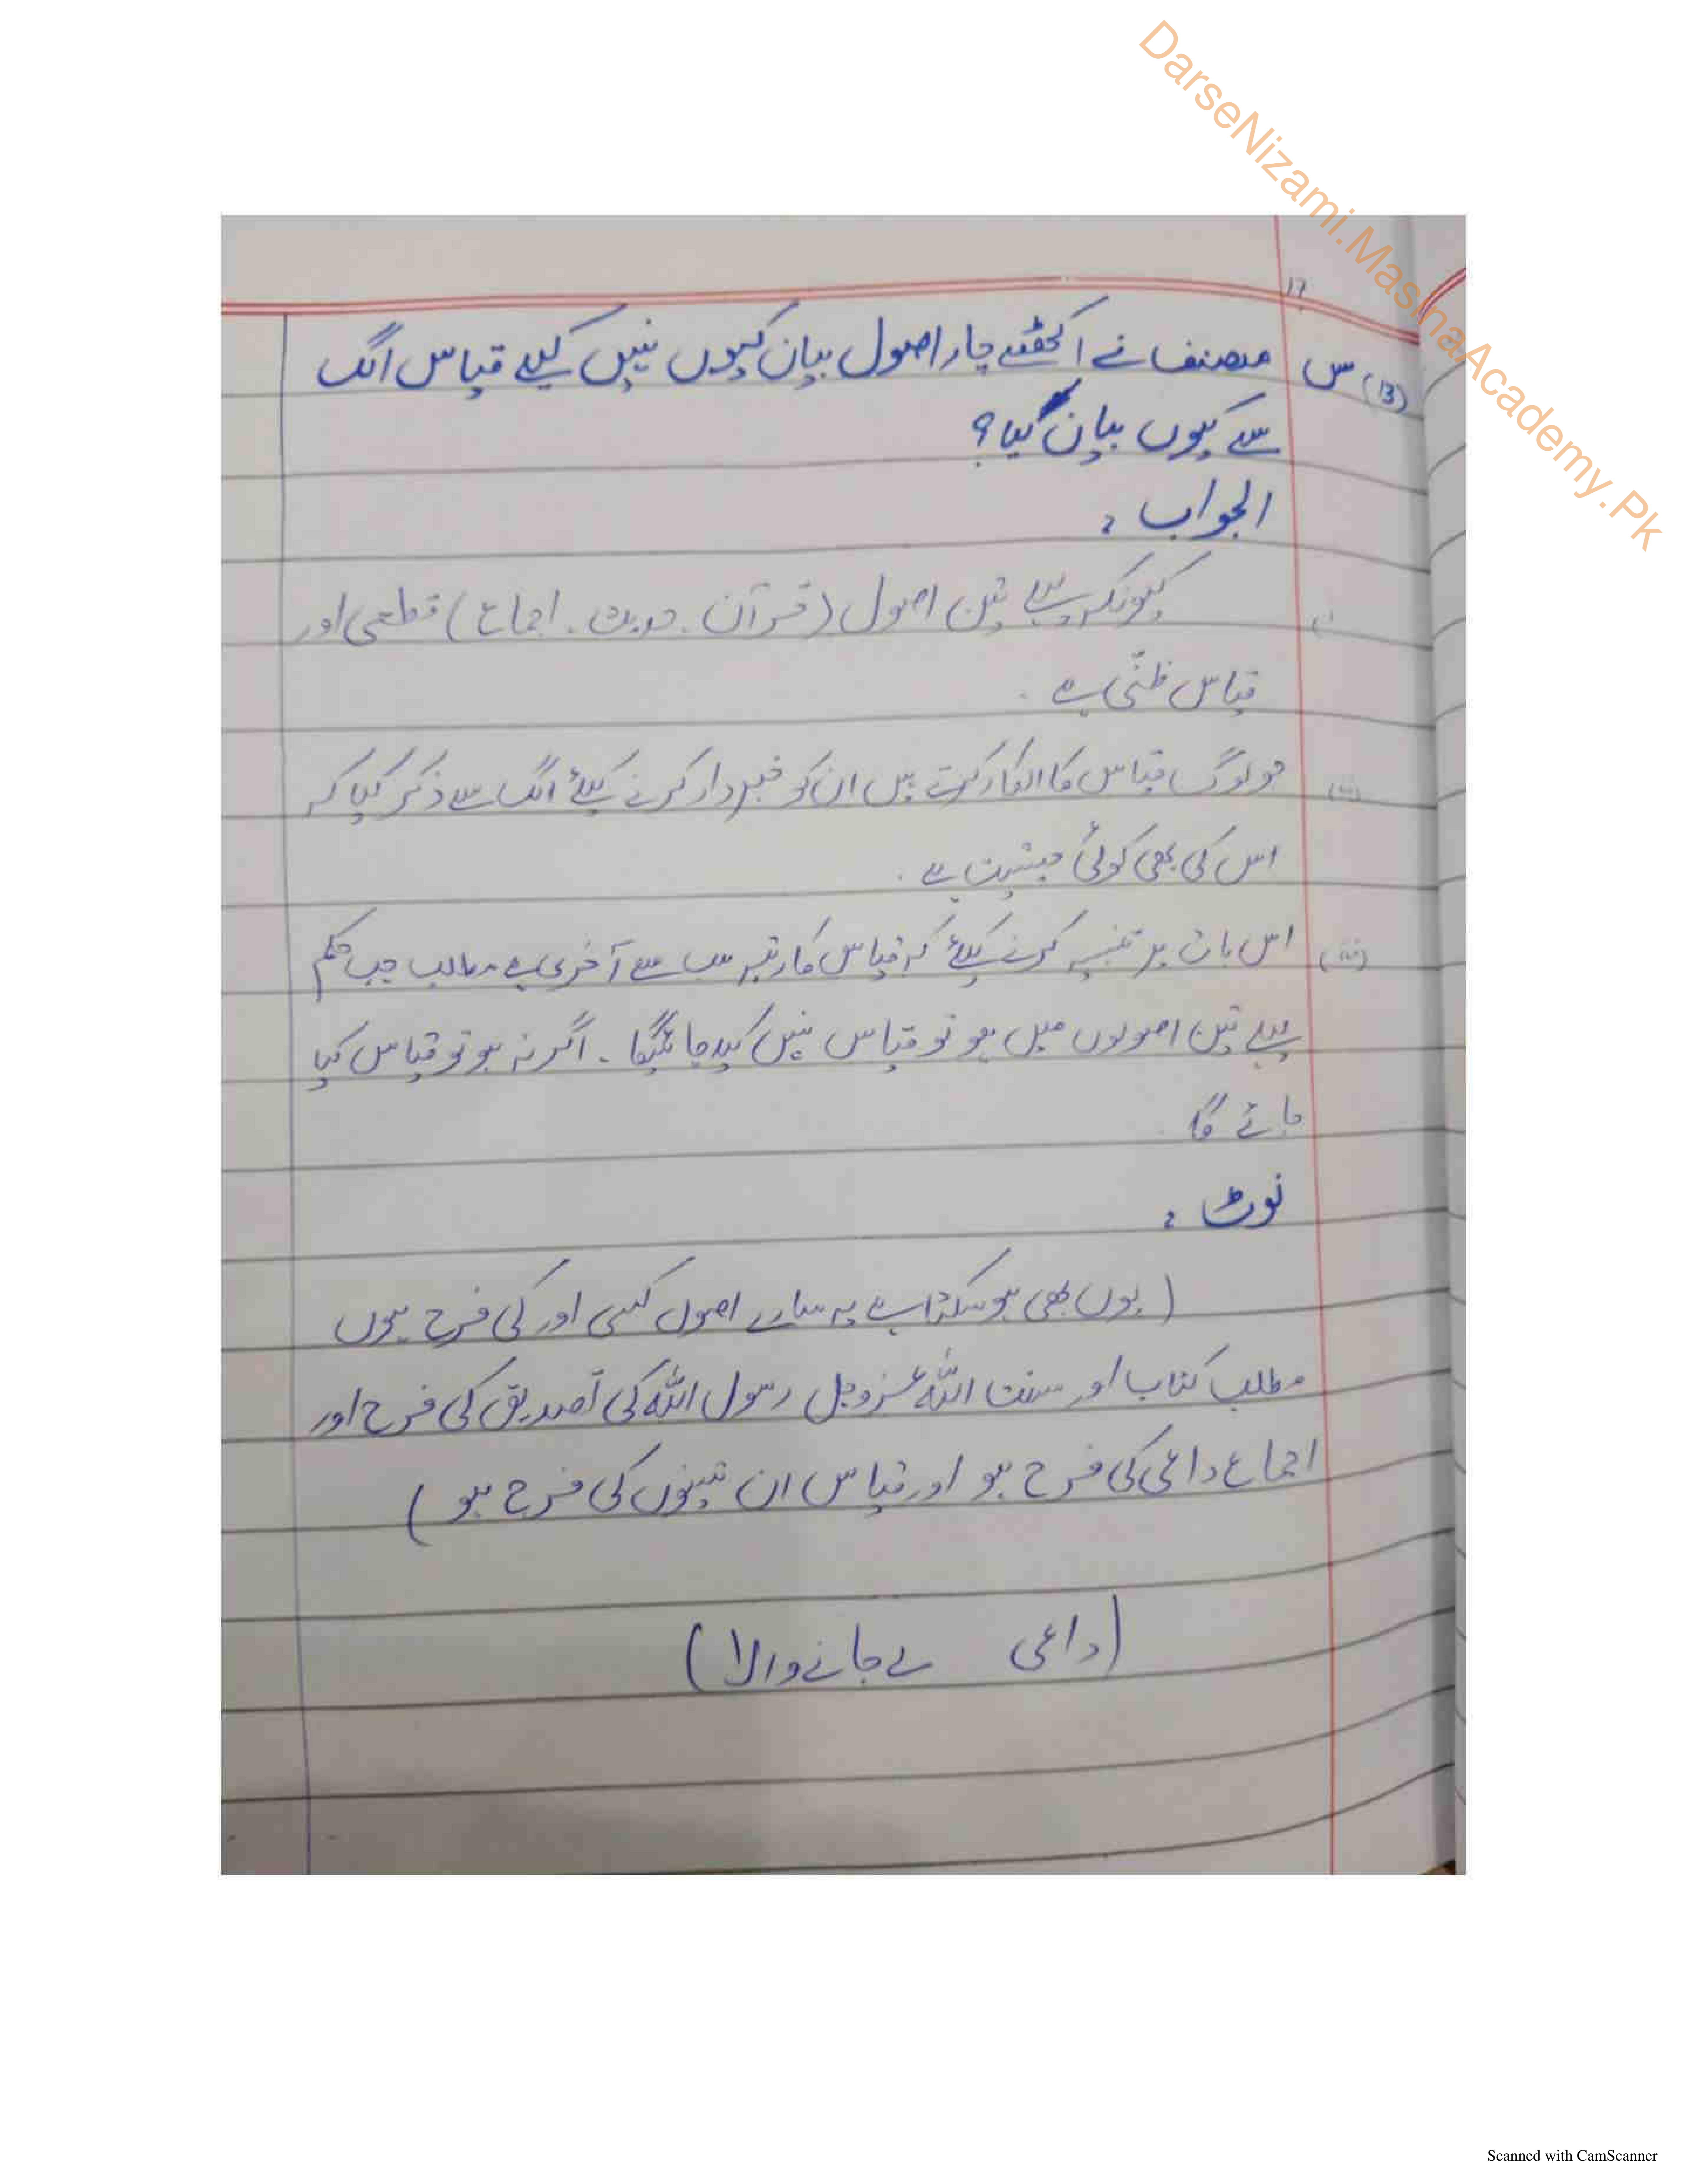 DarseNizami.MasinaAcademy.Pk
17
(13) س مصنف نے اکٹھے چار اصول بیان کیوں نہیں کیے قیاس الگ
سے کیوں بیان کیا؟
الجواب :
(i) کیونکہ پہلے تین اصول (قرآن . حدیث . اجماع) قطعی اور
قیاس ظنّی ہے .
(ii) جو لوگ قیاس کا انکار کرتے ہیں ان کو خبردار کرنے کیلئے الگ سے ذکر کیا کہ
اس کی بھی کوئی حیثیت ہے .
(iii) اس بات پر تنبیہ کرنے کیلئے کہ قیاس کا رتبہ سب سے آخری ہے مطلب جب حکم
پہلے تین اصولوں میں ہو تو قیاس نہیں کیا جائیگا . اگر نہ ہو تو قیاس کیا
جائے گا
نوٹ :
(یوں بھی ہوسکتا ہے یہ سارے اصول کسی اور کی فرح ہوں
مطلب کتاب اور سنت اللہ عزوجل رسول اللہ کی تصدیق کی فرح اور
اجماع داعی کی فرح ہو اور قیاس ان تینوں کی فرح ہو)
(داعی لے جانے والا)
Scanned with CamScanner